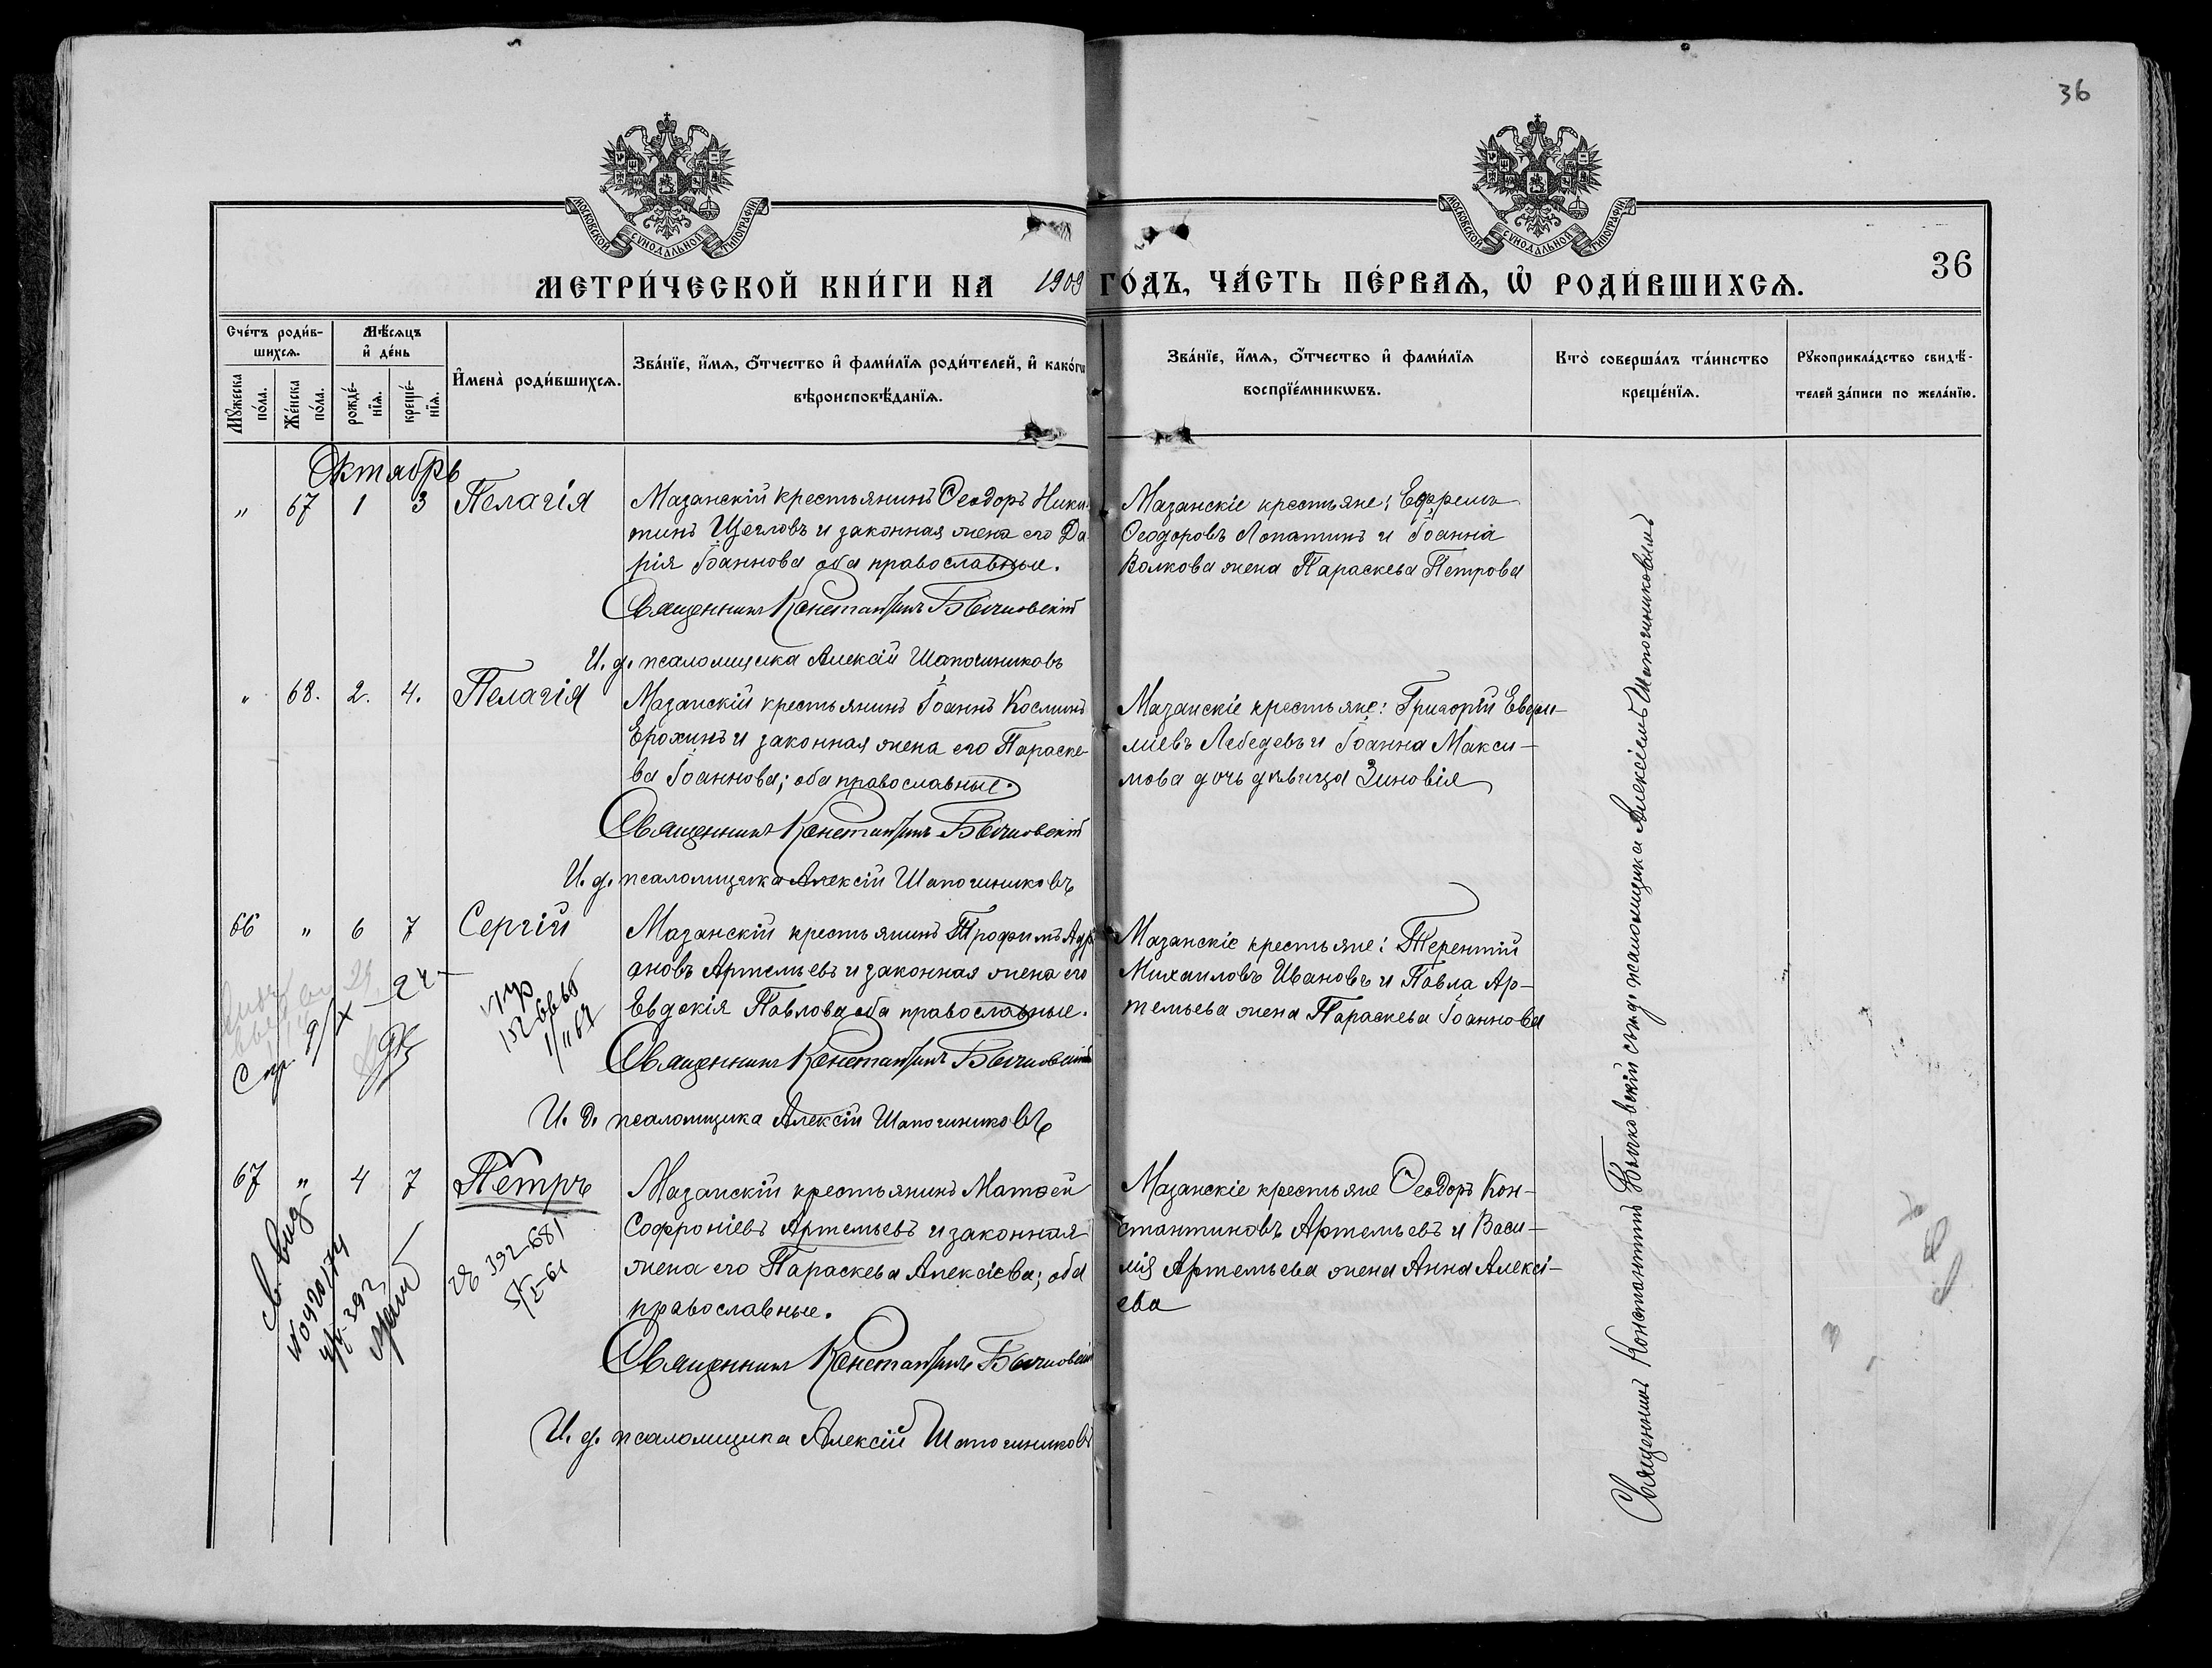 36
МОСКОВСКОЙ СУНОДАЛЬНОЙ ТИПОГРАФІИ
МОСКОВСКОЙ СУНОДАЛЬНОЙ ТИПОГРАФІИ
36
МЕТРИ́ЧЕСКОЙ КНИ́ГИ НА 1909 ГО́ДЪ, ЧА́СТЬ ПЕ́РВАѦ, Ѡ҆ РОДИ́ВШИХСѦ.
Сче́тъ роди́в-
шихсѧ.
Мꙋ́жеска по́ла.
Же́нска по́ла.
Мѣ́сѧцъ
и҆ де́нь
рожде́-
нїѧ.
креще́-
нїѧ.
И҆мена̀ роди́вшихсѧ.
Зва́нїе, и҆́мѧ, ѻ҆́тчество и҆ фами́лїѧ роди́телей, и҆ како́гѡ
вѣроисповѣ́данїѧ.
Зва́нїе, и҆́мѧ, ѻ҆́тчество и҆ фами́лїѧ
воспрїе́мникѡвъ.
Кто̀ соверша́лъ та́инство
креще́нїѧ.
Рꙋкоприкла́дство свидѣ́-
телей за́писи по жела́нїю.
Октябрь
" 67 1 3 Пелагія
Мазанскій крестьянинъ Ѳеодоръ Ники-
тинъ Щегловъ и законная жена его Да-
рія Іоаннова оба православные.
Священникъ Константинъ Бычковскій
И. д. псаломщика Алексій Шапочниковъ
Мазанскіе крестьяне: Ефремъ
Ѳеодоровъ Лопатинъ и Іоанна
Волкова жена Параскева Петрова
" 68. 2. 4. Пелагія
Мазанскій крестьянинъ Іоаннъ Косминъ
Ерохинъ и законная жена его Параске-
ва Іоаннова; оба православные.
Священникъ Константинъ Бычковскій
И. д. псаломщика Алексій Шапочниковъ
Мазанскіе крестьяне: Григорій Евфи-
міевъ Лебедевъ и Іоанна Макси-
мова дочь дѣвица Зиновія
66 " 6 7 Сергій
Мазанскій крестьянинъ Трофимъ Адрі-
ановъ Артемьевъ и законная жена его
Евдокія Павлова оба православные.
Священникъ Константинъ Бычковскій
И. д. псаломщика Алексій Шапочниковъ
Мазанскіе крестьяне: Терентій
Михаиловъ Ивановъ и Павла Ар-
темьева жена Параскева Іоаннова
67 " 4 7 Петръ
392-681
5/I-61
Мазанскій крестьянинъ Матѳей
Софроніевъ Артемьевъ и законная
жена его Параскева Алексіева; оба
православные.
Священникъ Константинъ Бычковскій
И. д. псаломщика Алексій Шапочниковъ
Мазанскіе крестьяне Ѳеодоръ Кон-
стантиновъ Артемьевъ и Васи-
лія Артемьева жена Анна Алексі-
ева
Священникъ Константинъ Бычковскій съ и. д. псаломщика Алексіемъ Шапочниковымъ